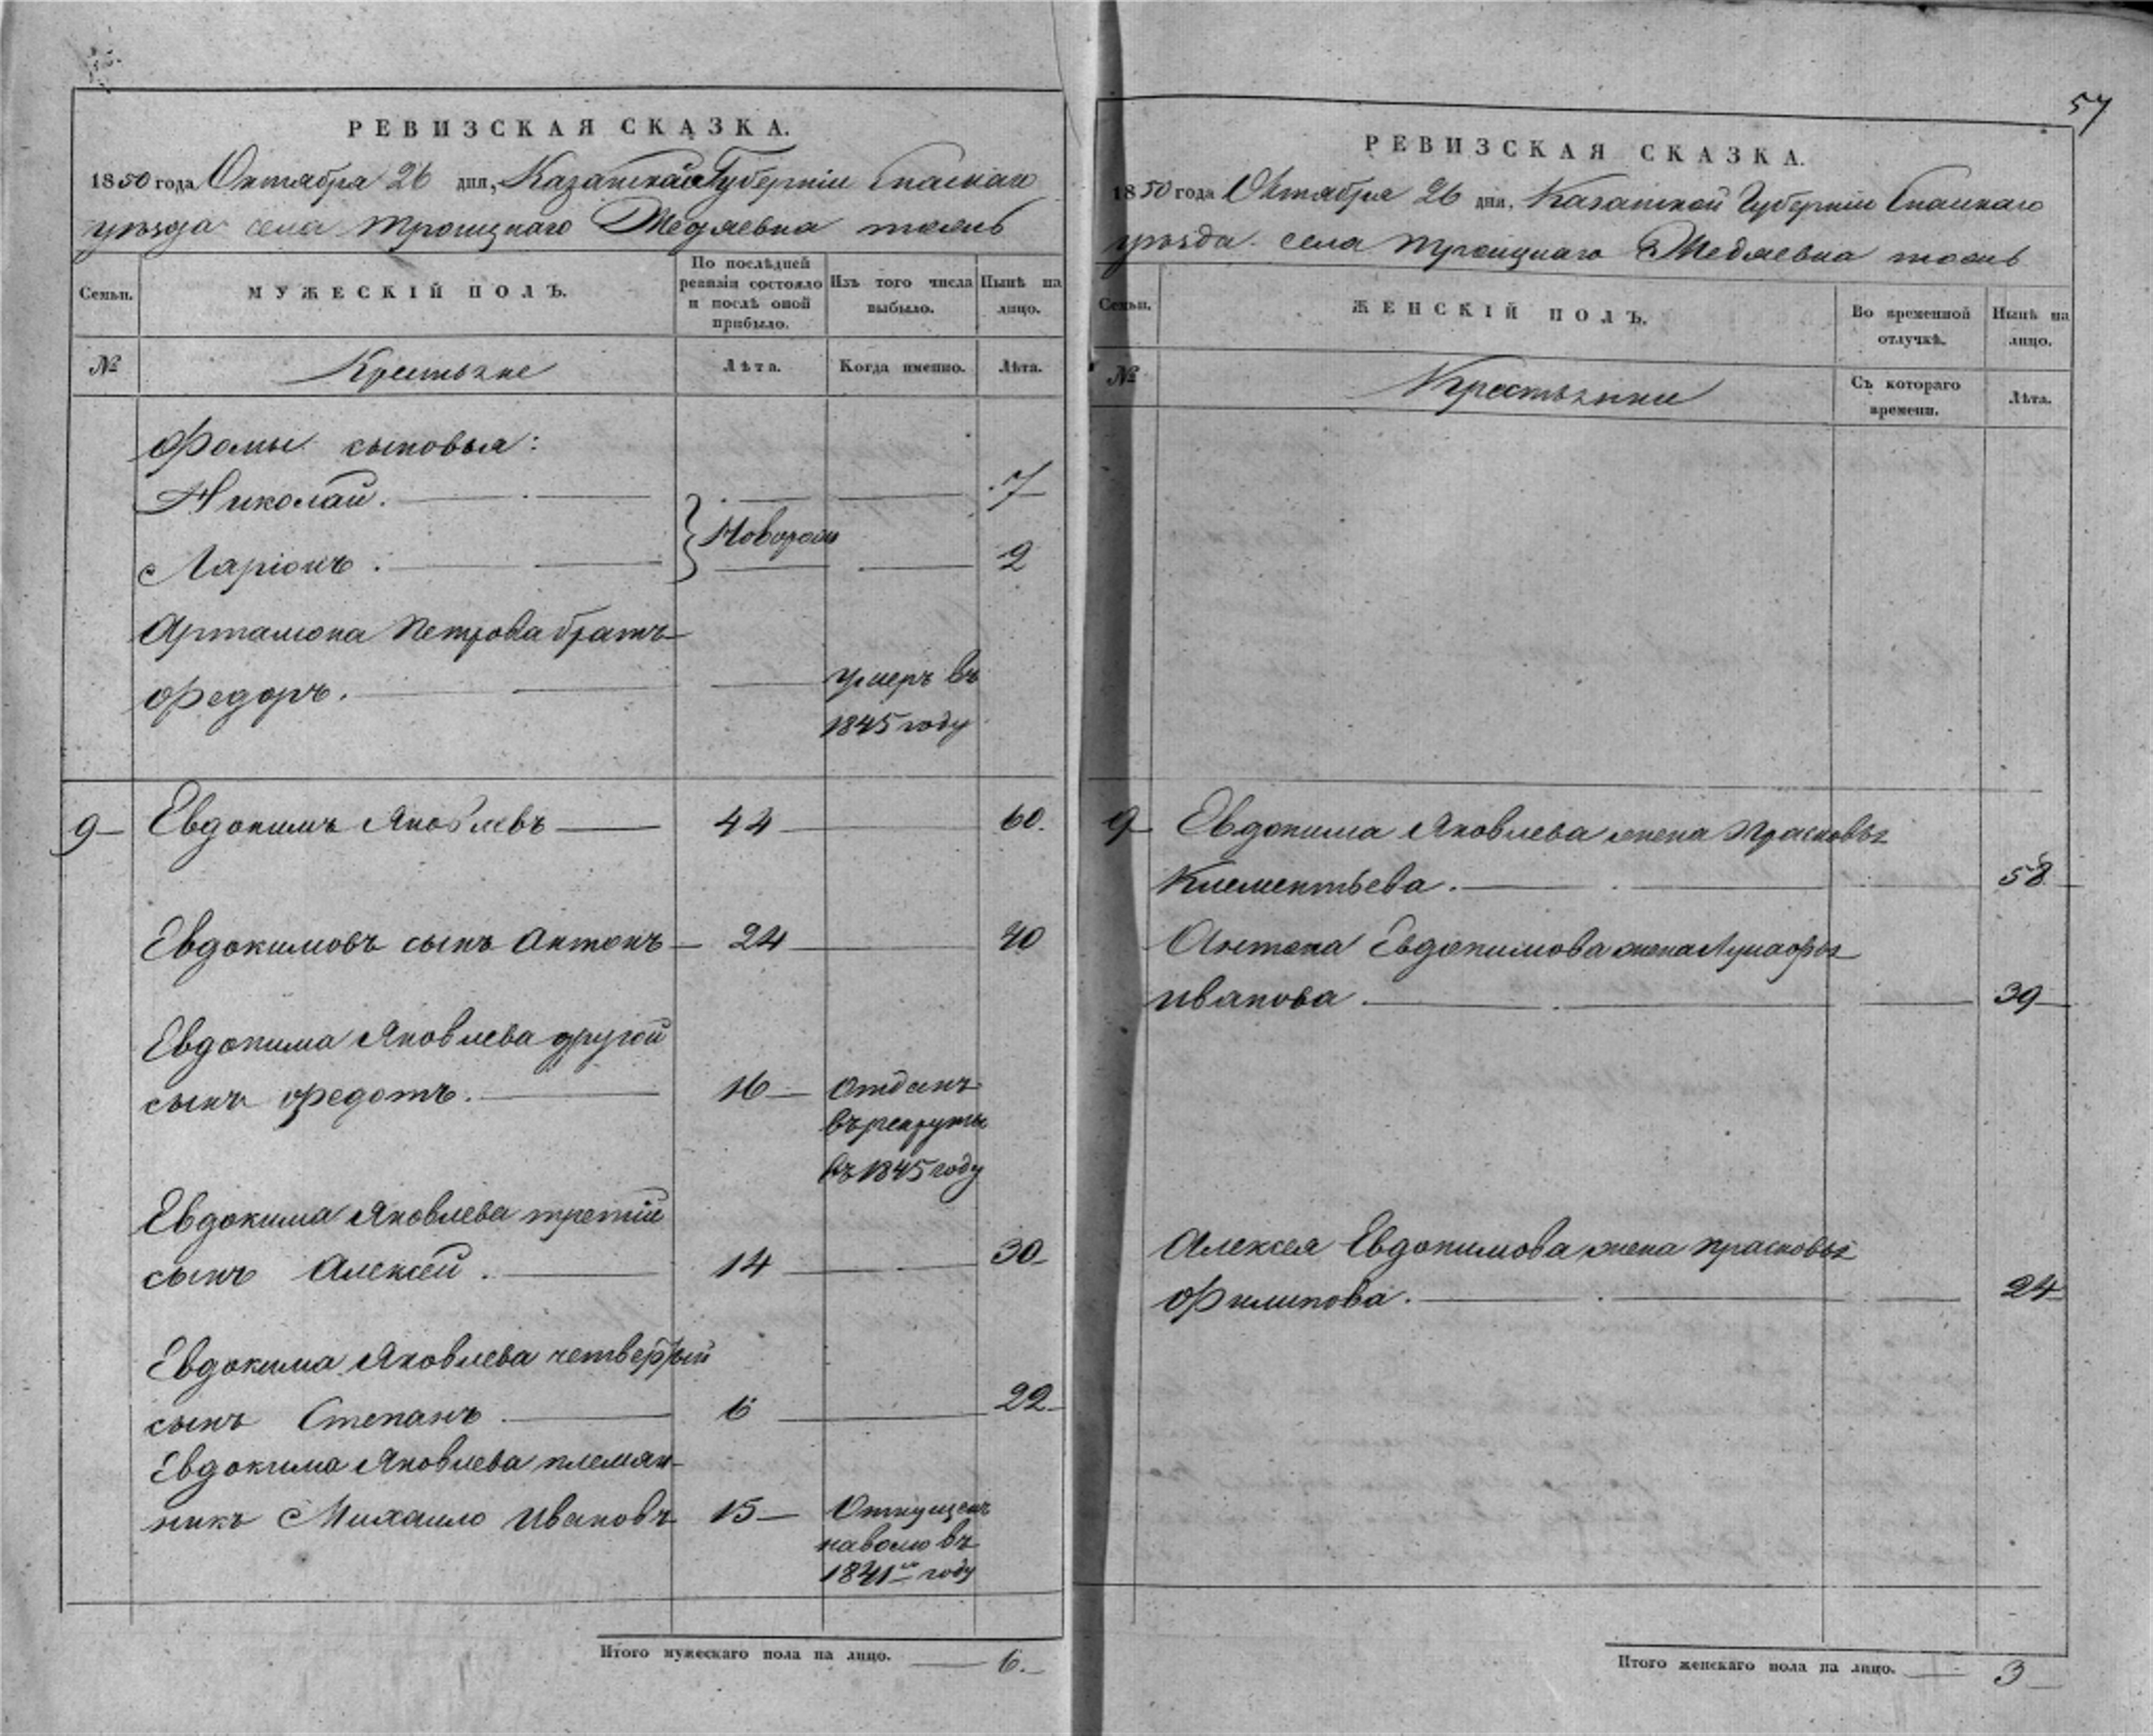 РЕВИЗСКАЯ СКАЗКА.
1850 года Октября 26 дня, Казанской Губерніи Спаскаго
уѣзда села Троицкаго Медяевка тожъ
Семьи.
МУЖЕСКІЙ ПОЛЪ.
По послѣдней ревизіи состояло и послѣ оной прибыло.
Изъ того числа выбыло.
Нынѣ на лицо.
№
Крестьяне
Лѣта.
Когда именно.
Лѣта.
Фомы сыновья:
Николай. 7
Новорож
Ларіонъ. 2
Артамона Петрова братъ
Федоръ. умеръ въ
1845 году
9 Евдокимъ Яковлевъ 44 60.
Евдокимовъ сынъ Антонъ 24 40
Евдокима Яковлева другой
сынъ Федотъ. 16 Отданъ
въ рекруты
въ 1845 году
Евдокима Яковлева третій
сынъ Алексей. 14 30
Евдокима Яковлева четвертый
сынъ Степанъ. 6 22
Евдокима Яковлева племян-
никъ Михаило Ивановъ 15 Отпущенъ
наволю въ
1841м году
Итого мужескаго пола на лицо. 6.
57
РЕВИЗСКАЯ СКАЗКА.
1850 года Октября 26 дня, Казанской Губерніи Спаскаго
уѣзда села Троицкаго Медяевка тожъ
Семьи.
ЖЕНСКІЙ ПОЛЪ.
Во временной отлучкѣ.
Нынѣ на лицо.
№
Крестьянки
Съ котораго времени.
Лѣта.
9 Евдокима Яковлева жена Прасковья
Клементьева. 58
Антона Евдокимова жена Лукафья
Иванова. 39
Алексея Евдокимова жена Прасковья
Филипова. 24
Итого женскаго пола на лицо. 3